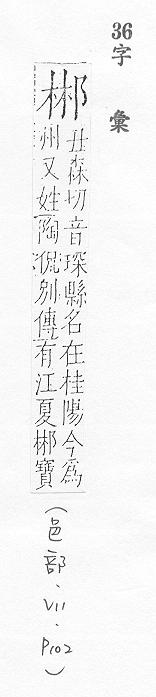 36
字彙
郴
丑森切音琛縣名在桂陽今爲
州又姓陶侃別傳有江夏郴寶
(邑部.VII.P102)